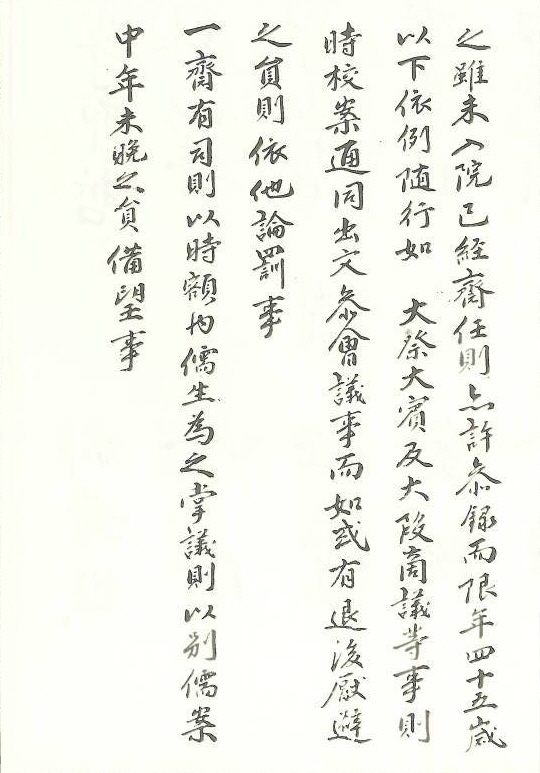 之雖未入院已經齋任則亦許叅錄而限年四十五歲
以下依例随行如　大祭大賓及大段商議等事則
時校案通同出文叅會議事而如或有退後厭避
之員則依他論罰事
一齋有司則以時額內儒生爲之掌議則以別儒案
中年未晩之員備望事